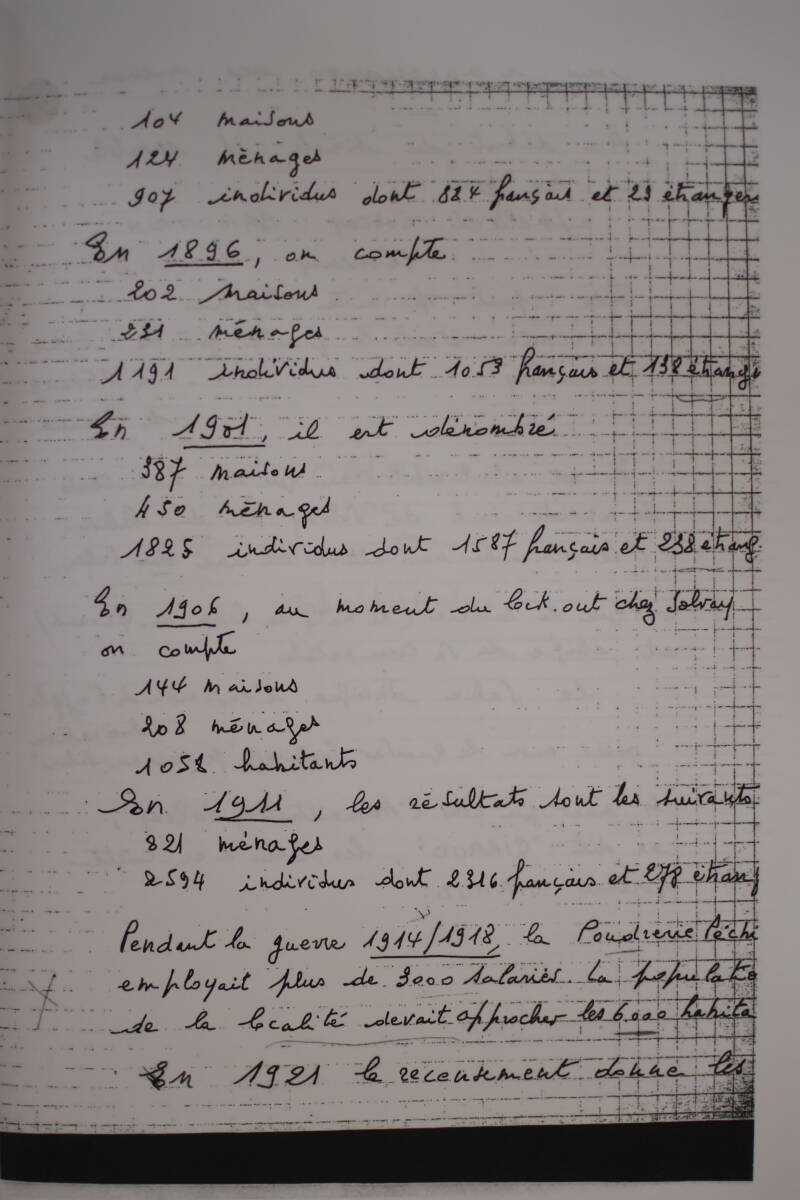 104 maisons
124 ménages
907 individus dont 824 français et 23 étrangers
En 1896, on compte
202 maisons
221 ménages
1191 individus dont 1053 français et 138 étrang
En 1901, il est dénombré
387 maisons
450 ménages
1825 individus dont 1587 français et 238 étrang
En 1906, au moment du lock.out chez Solvay
on compte
144 maisons
208 ménages
1058 habitants
En 1911, les résultats sont les suivants
821 ménages
2594 individus dont 2316 français et 278 étrang
Pendant la guerre 1914/1918, la Poudrerie Péchi
employait plus de 3000 salariés. La populatio
de la localité devait approcher les 6.000 habita
En 1921 le recensement donne les